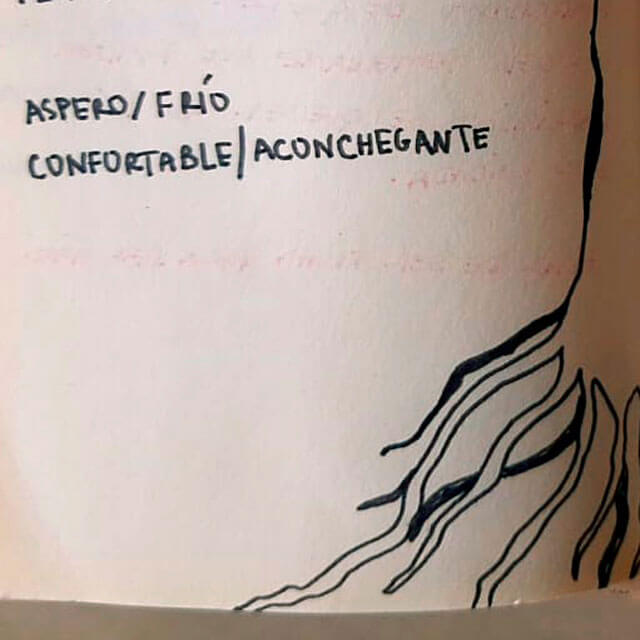 ASPERO/FRÍO
CONFORTABLE/ACONCHEGANTE